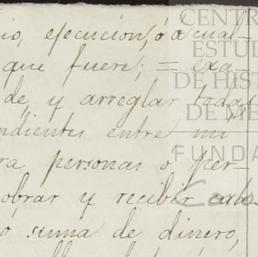 io, ejecucion, ó á cual-
que fuere; = exa-
de y arreglar todas
ndientes entre mi
ra personas o per-
obrar y recibir
ó suma de dinero,
CENTRO
ESTUD
DE HIST
DE ME
FUNDA